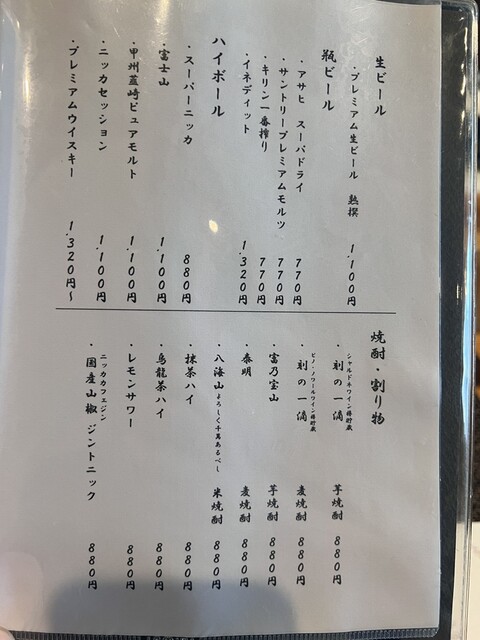 生ビール
・プレミアム生ビール 熟撰 1,100円
瓶ビール
・アサヒ スーパドライ 770円
・サントリープレミアムモルツ 770円
・キリン一番搾り 770円
・イネディット 1,320円
ハイボール
・スーパーニッカ 880円
・富士山 1,100円
・甲州韮崎ピュアモルト 1,100円
・ニッカセッション 1,100円
・プレミアムウイスキー 1,320円~
焼酎・割り物
シャルドネワイン樽貯蔵
・刻の一滴 芋焼酎 880円
ピノ・ノワールワイン樽貯蔵
・刻の一滴 麦焼酎 880円
・富乃宝山 芋焼酎 880円
・泰明 麦焼酎 880円
・八海山よろしく千萬あるべし 米焼酎 880円
・抹茶ハイ 880円
・烏龍茶ハイ 880円
・レモンサワー 880円
ニッカカフェジン
・国産山椒 ジントニック 880円